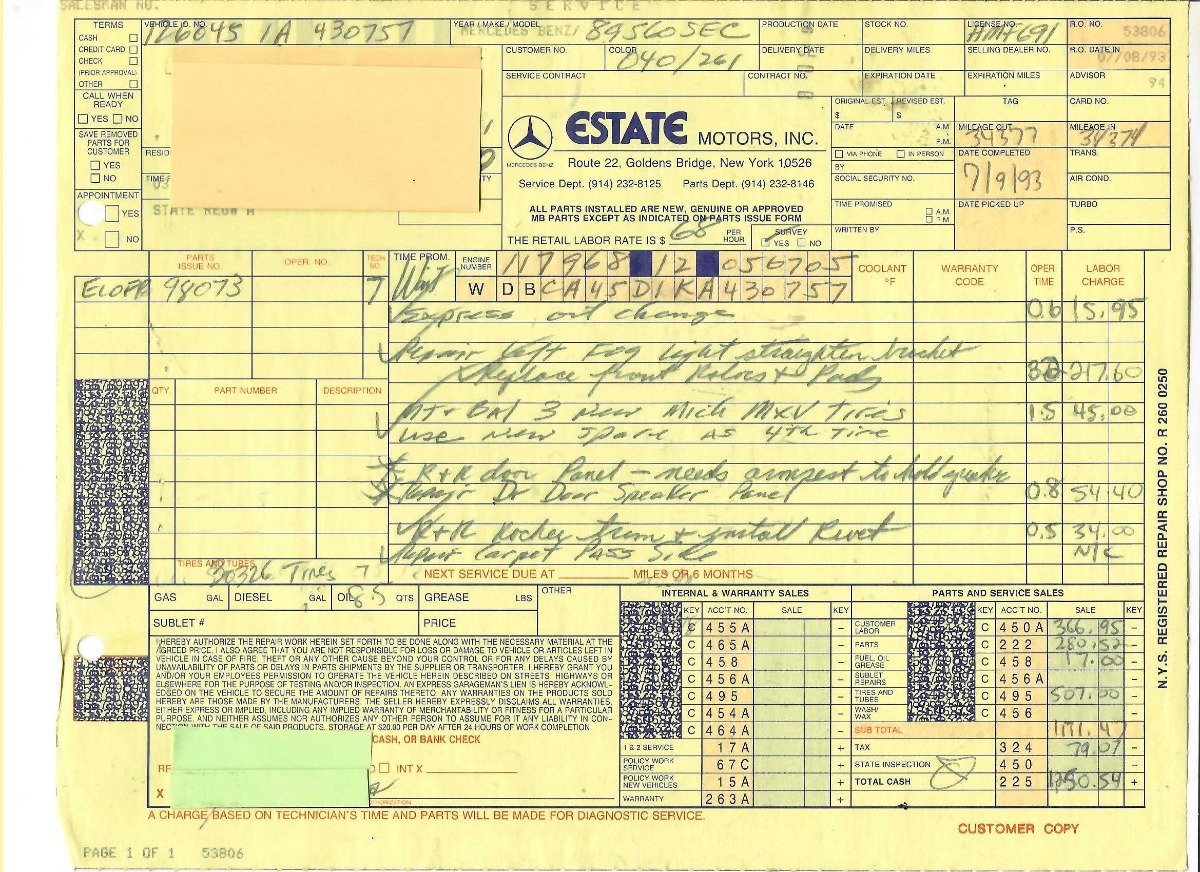 SALESMAN NO.
SERVICE
TERMS
CASH
CREDIT CARD
CHECK
(PRIOR APPROVAL)
OTHER
CALL WHEN READY
YES NO
SAVE REMOVED PARTS FOR CUSTOMER
YES
NO
APPOINTMENT
YES
X NO
VEHICLE ID. NO. 126045 1A 430757
YEAR / MAKE / MODEL MERCEDES BENZ/ 89560SEC
PRODUCTION DATE
STOCK NO.
LICENSE NO.
R.O. NO. 53806
CUSTOMER NO.
COLOR 040/261
DELIVERY DATE
DELIVERY MILES
SELLING DEALER NO.
R.O. DATE IN 07/08/93
SERVICE CONTRACT
CONTRACT NO.
EXPIRATION DATE
EXPIRATION MILES
ADVISOR 94
ORIGINAL EST. $
REVISED EST. $
TAG
CARD NO.
DATE A.M. P.M.
MILEAGE OUT 34377
MILEAGE IN 34374
VIA PHONE IN PERSON
DATE COMPLETED 7/9/93
TRANS.
BY
SOCIAL SECURITY NO.
AIR COND.
TIME PROMISED A.M. P.M.
DATE PICKED UP
TURBO
WRITTEN BY
P.S.
MERCEDES BENZ
ESTATE MOTORS, INC.
Route 22, Goldens Bridge, New York 10526
Service Dept. (914) 232-8125 Parts Dept. (914) 232-8146
ALL PARTS INSTALLED ARE NEW, GENUINE OR APPROVED
MB PARTS EXCEPT AS INDICATED ON PARTS ISSUE FORM
THE RETAIL LABOR RATE IS $ 68 PER HOUR
SURVEY YES NO
PARTS ISSUE NO. OPER. NO. TECH NO. TIME PROM. Wait
ENGINE NUMBER 117968 12 056705
W D B C A 4 5 D 1 K A 4 3 0 7 5 7
COOLANT °F WARRANTY CODE OPER. TIME LABOR CHARGE
98073 7
Express oil change 0.6 15.95
Repair left Fog light straighten bracket
Replace front Rotors + Pads 217.60
QTY PART NUMBER DESCRIPTION
Mt + Bal 3 New Mich MXV Tires 1.5 45.00
use New Spare as 4th Tire
R+R door Panel - needs armrest to hold
Repair Dr Door Speaker Panel 0.8 54.40
R+R Rocker trim + install Rivet 0.5 34.00
Repair Carpet Pass Side N/C
TIRES AND TUBES Tires 7
NEXT SERVICE DUE AT MILES OR 6 MONTHS
GAS GAL DIESEL GAL OIL 8.5 QTS GREASE LBS OTHER
SUBLET # PRICE
I HEREBY AUTHORIZE THE REPAIR WORK HEREIN SET FORTH TO BE DONE ALONG WITH THE NECESSARY MATERIAL AT THE
AGREED PRICE. I ALSO AGREE THAT YOU ARE NOT RESPONSIBLE FOR LOSS OR DAMAGE TO VEHICLE OR ARTICLES LEFT IN
VEHICLE IN CASE OF FIRE, THEFT OR ANY OTHER CAUSE BEYOND YOUR CONTROL OR FOR ANY DELAYS CAUSED BY
UNAVAILABILITY OF PARTS OR DELAYS IN PARTS SHIPMENTS BY THE SUPPLIER OR TRANSPORTER. I HEREBY GRANT YOU
AND/OR YOUR EMPLOYEES PERMISSION TO OPERATE THE VEHICLE HEREIN DESCRIBED ON STREETS, HIGHWAYS OR
ELSEWHERE FOR THE PURPOSE OF TESTING AND/OR INSPECTION. AN EXPRESS GARAGEMAN'S LIEN IS HEREBY ACKNOWL-
EDGED ON THE VEHICLE TO SECURE THE AMOUNT OF REPAIRS THERETO. ANY WARRANTIES ON THE PRODUCTS SOLD
HEREBY ARE THOSE MADE BY THE MANUFACTURERS. THE SELLER HEREBY EXPRESSLY DISCLAIMS ALL WARRANTIES,
EITHER EXPRESS OR IMPLIED, INCLUDING ANY IMPLIED WARRANTY OF MERCHANTABILITY OR FITNESS FOR A PARTICULAR
PURPOSE, AND NEITHER ASSUMES NOR AUTHORIZES ANY OTHER PERSON TO ASSUME FOR IT ANY LIABILITY IN CON-
NECTION WITH THE SALE OF SAID PRODUCTS. STORAGE AT $20.00 PER DAY AFTER 24 HOURS OF WORK COMPLETION
CASH, OR BANK CHECK
INT X
X
INTERNAL & WARRANTY SALES
KEY ACC'T NO. SALE KEY
C 455A -
C 465A -
C 458 -
C 456A -
C 495 -
C 454A -
C 464A -
1 & 2 SERVICE 17A +
POLICY WORK SERVICE 67C +
POLICY WORK NEW VEHICLES 15A +
WARRANTY 263A +
PARTS AND SERVICE SALES
KEY ACC'T NO. SALE KEY
CUSTOMER LABOR C 450A 366.95 -
PARTS C 222 280.52 -
FUEL, OIL GREASE C 458 17.00 -
SUBLET REPAIRS C 456A -
TIRES AND TUBES C 495 507.00 -
WASH/WAX C 456 -
SUB TOTAL 1171.47
TAX 324 79.07 -
STATE INSPECTION 450 -
TOTAL CASH 225 1250.54 +
A CHARGE BASED ON TECHNICIAN'S TIME AND PARTS WILL BE MADE FOR DIAGNOSTIC SERVICE.
CUSTOMER COPY
PAGE 1 OF 1 53806
N.Y.S. REGISTERED REPAIR SHOP NO. R 260 0250